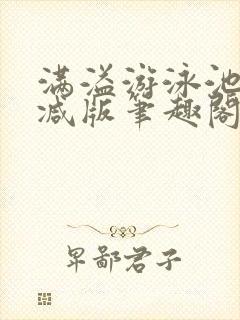 满溢游泳池
减版笔趣阁
卑鄙君子